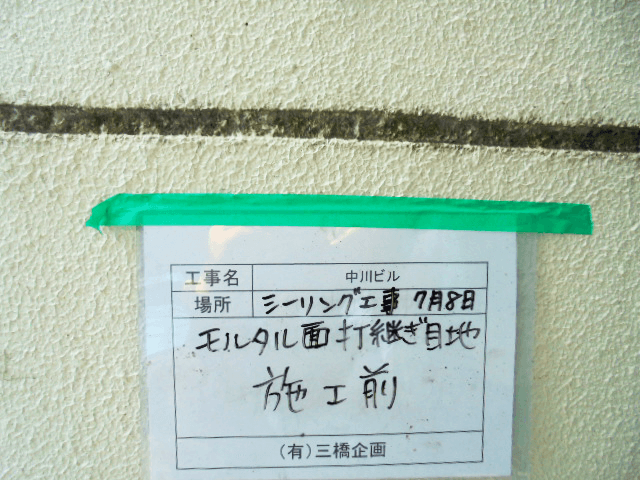 工事名 中川ビル
場所 シーリング工事 7月8日
モルタル面打継ぎ目地
施工前
(有)三橋企画